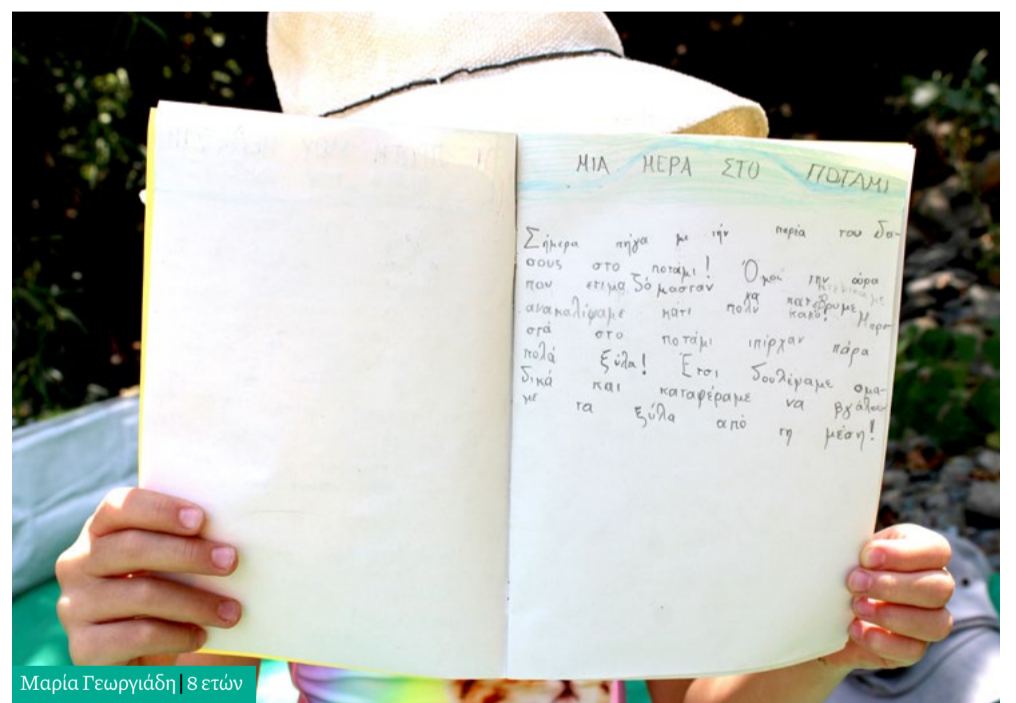 ΜΙΑ ΜΕΡΑ ΣΤΟ ΠΟΤΑΜΙ
Σήμερα πήγα με τήν παρέα του δά-
σους στο ποτάμι! Όμος την ώρα
που ετιμαζόμασταν να κατεβουμε
ανακαλίψαμε κάτι πολύ κακό! Μπρο-
στά στο ποτάμι ιπίρχαν πάρα
πολά ξύλα! Ετσι δουλέψαμε ομα-
δικά και καταφέραμε να βγάλου-
με τα ξύλα από τη μέση!
Μαρία Γεωργιάδη | 8 ετών